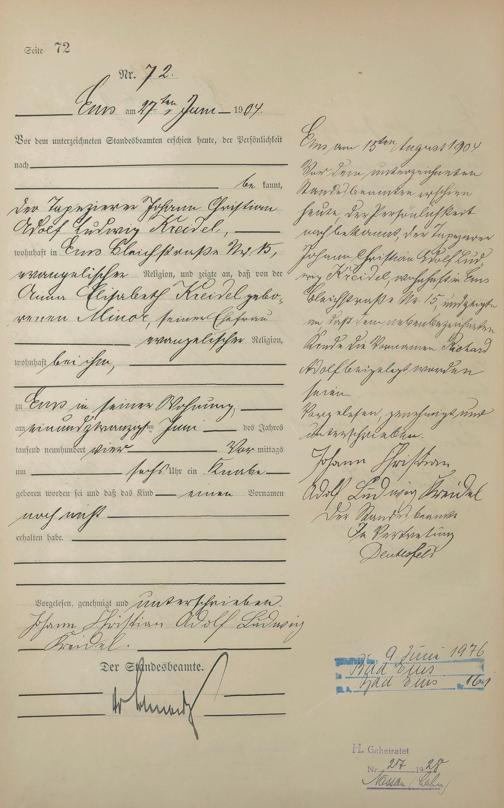 Seite 72
Nr. 72.
Ems am 27ten Juni 1904.
Vor dem unterzeichneten Standesbeamten erschien heute, der Persönlichkeit
nach
be kannt,
der Tapezierer Johann Christian
Adolf Ludwig Kreidel,
wohnhaft in Ems Bleichstraße Nr. 15,
evangelischer Religion, und zeigte an, daß von der
Anna Elisabeth Kreidel gebo-
renen Minor, seiner Ehefrau
evangelischer Religion,
wohnhaft bei ihm,
zu Ems in seiner Wohnung,
am einundzwanzigsten Juni des Jahres
tausend neunhundert vier Vor mittags
um sechs Uhr ein Knabe
geboren worden sei und daß das Kind einen Vornamen
noch nicht
erhalten habe.
Vorgelesen, genehmigt und unterschrieben.
Johann Christian Adolf Ludwig
Kreidel.
Der Standesbeamte.
Ems, am 15ten August 1904
Vor dem unterzeichneten
Standesbeamten erschien
heute, der Persönlichkeit
nach bekannt, der Tapezierer
Johann Christian Adolf Lud
wig Kreidel, wohnhaft in Ems
Bleichstraße Nr. 15, und zeigte
an, daß dem nebenbezeichneten
Kinde die Vornamen Richard
Adolf beigelegt worden
seien.
Vorgelesen, genehmigt und
unterschrieben.
Johann Christian
Adolf Ludwig Kreidel
Der Standesbeamte
In Vertretung
9 Juni 1976
Bad Ems
Bad Ems
H. Geheiratet
Nr. 27 1928
Nassau (Lahn)